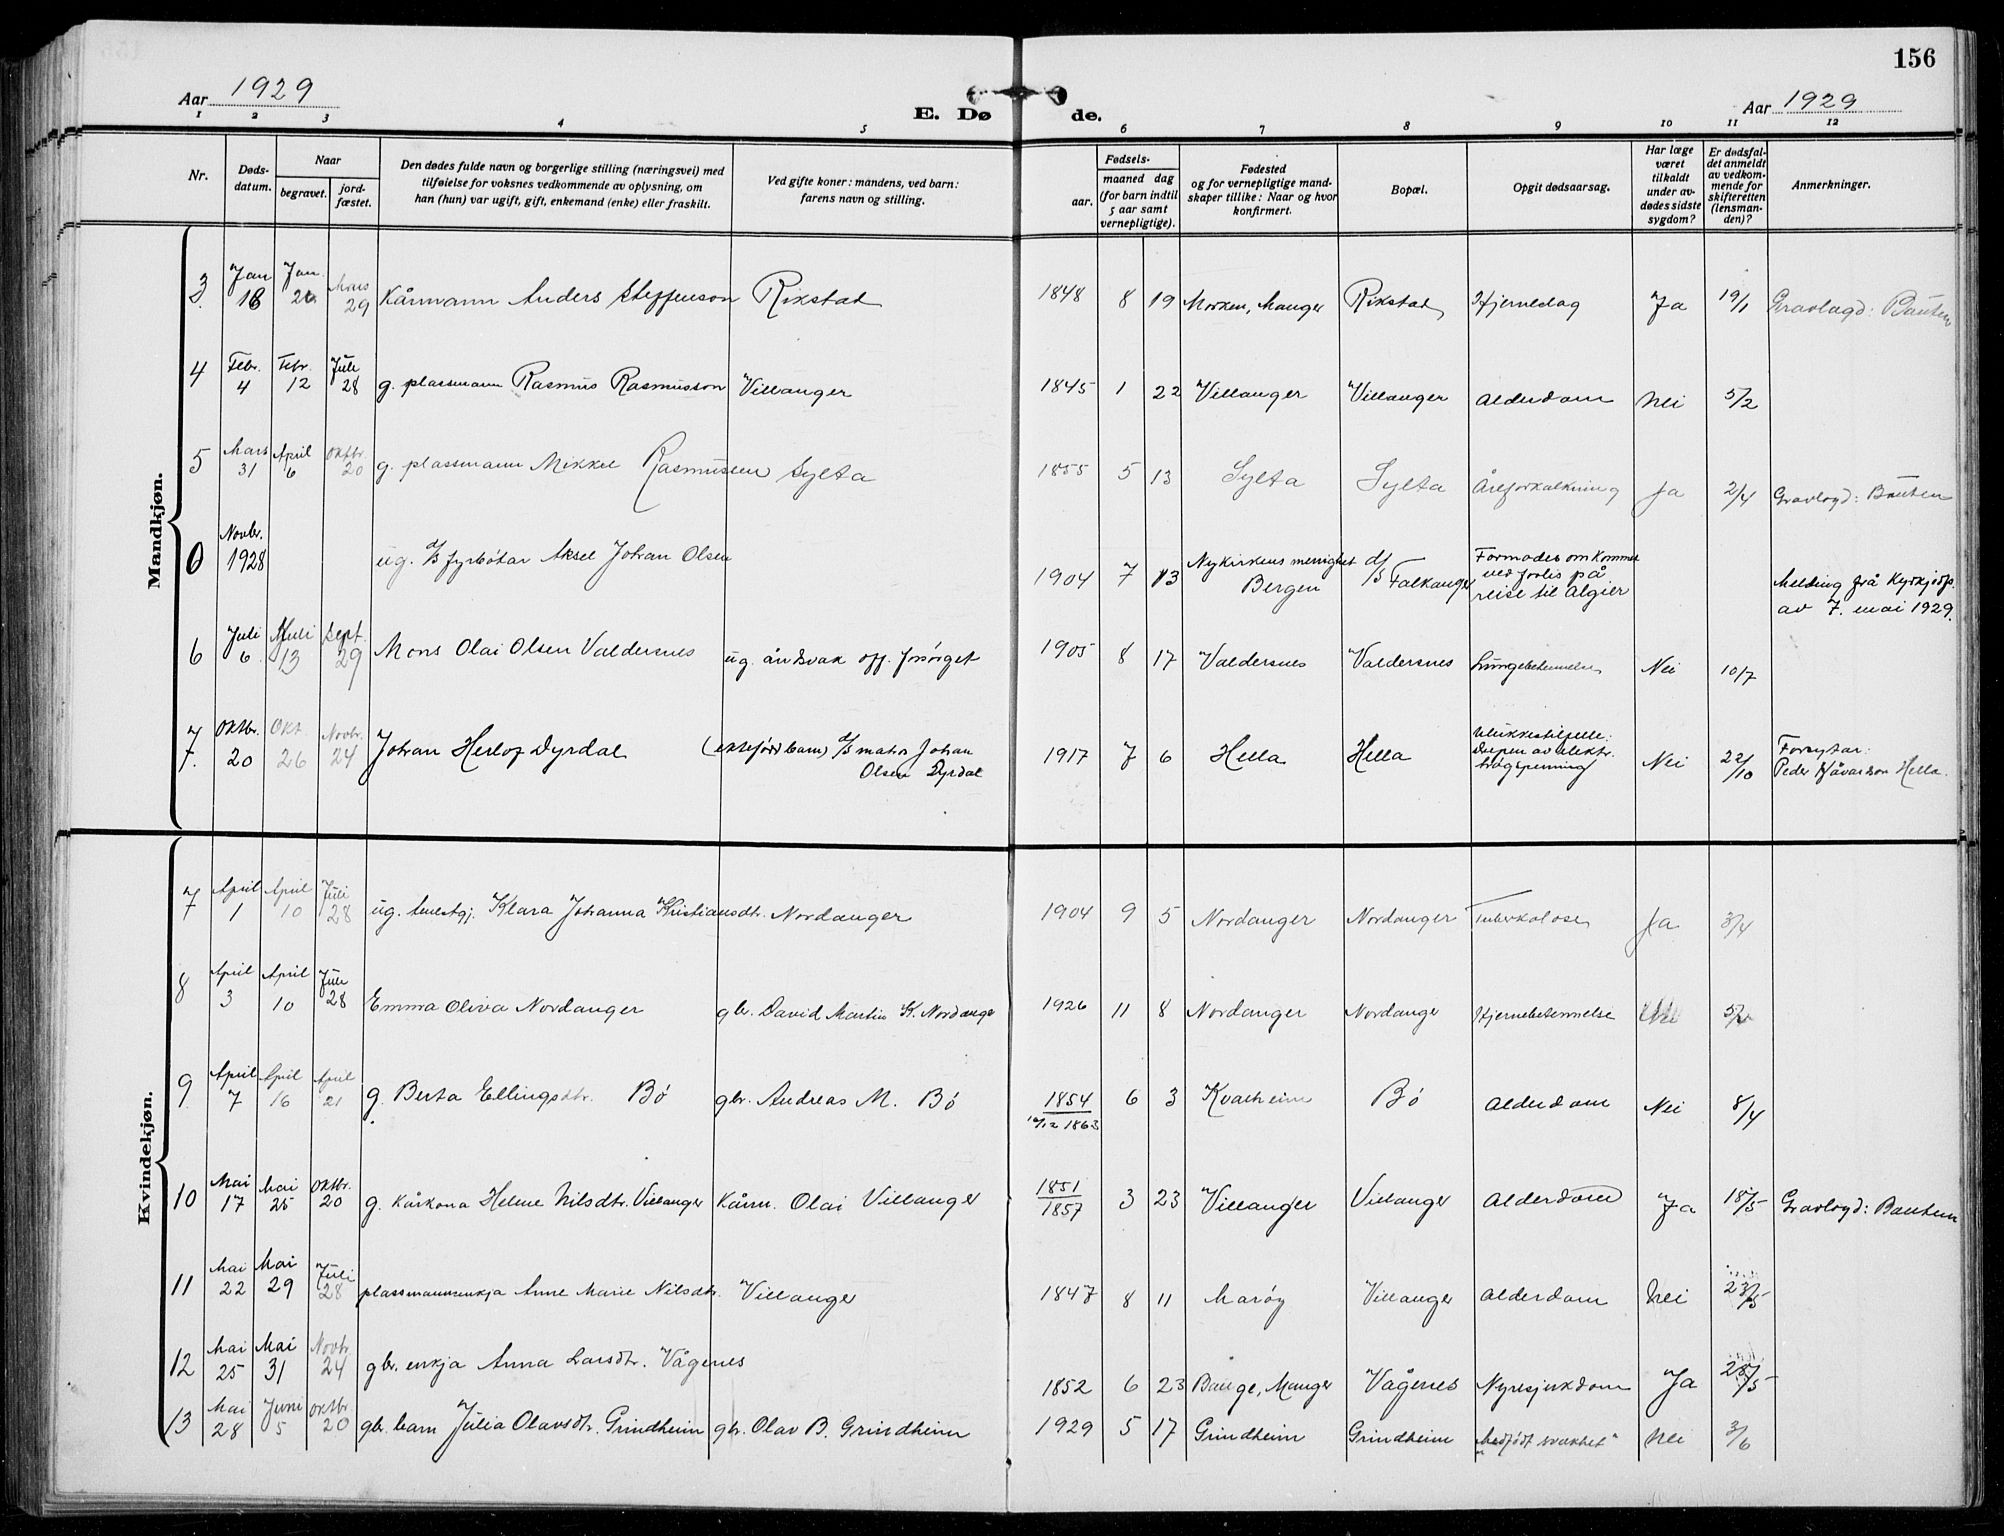 156
Aar 1929
E. Dø de.
Aar 1929
1 2 3 4 5 6 7 8 9 10 11 12
Nr.
Døds-
datum.
Naar
begravet.
jord-
fæstet.
Den dødes fulde navn og borgerlige stilling (næringsvei) med
tilføielse for voksnes vedkommende av oplysning, om
han (hun) var ugift, gift, enkemand (enke) eller fraskilt.
Ved gifte koner: mandens, ved barn:
farens navn og stilling.
Fødsels-
aar.
maaned dag
(for barn indtil
5 aar samt
vernepligtige).
Fødested
og for vernepligtige mand-
skaper tillike: Naar og hvor
konfirmert.
Bopæl.
Opgit dødsaarsag.
Har læge
været
tilkaldt
under av-
dødes sidste
sygdom?
Er dødsfal-
det anmeldt
av vedkom-
mende for
skifteretten
(lensman-
den)?
Anmerkninger.
Mandkjøn.
3. Jan 18 Jan. 26 Mars 29 Kårmann Anders Steffenson Rikstad 1848 8 19 Morken, Manger Rikstad Hjerneslag Ja 19/1 Gravlagd: Bauten
4 Febr. 4 Febr. 12 Juli 28 g. plassmann Rasmus Rasmusson Villanger 1845 1 22 Villanger Villanger Alderdom Nei 5/2
5 Mars 31 April 6 Oktbr. 20 g. plassmann Mikkel Rasmussen Sylta 1855 5 13 Sylta Sylta Åreforkalkning Ja 2/4 Gravlogd: Bauten
0 Novbr. 1928 ug. d/s fyrbøtar Aksel Johan Olsen 1904 7 13 Nykirkens menighet Bergen d/s Falkanger Formodes omkommet
ved forlis på
reise til Algier
Melding frå Kyrkjedp.
av 7. mai 1929.
6 Juli 6 Juli 13 Sept. 29 Mons Olai Olsen Valdersnes ug. åndsvak off. forsørget 1905 8 17 Valdersnes Valdersnes Lungebetennelse Nei 10/7
7. Oktbr. 20 Okt. 26 Novbr. 24 Johan Herlof Dyrdal (ektefødd barn) d/s matros Johan
Olsen Dyrdal 1917 7 6 Hella Hella Ulukkestilfelle:
Drepen av elektr.
høgspenning Nei 22/10 Forsytar:
Peder Håvardson Hella.
Kvindekjøn.
7 April 1 April 10 Juli 28 ug. tenestgj. Klara Johanna Kristiansdtr. Nordanger 1904 9 5 Nordanger Nordanger Tuberkolose Ja 3/4
8 April 3 April 10 Juli 28 Emma Oliva Nordanger gbr. David Martin K. Nordanger 1926 11 8 Nordanger Nordanger Hjernebetennelse Nei
9. April 7 April 16 April 21 g. Berta Ellingsdtr. Bø gbr. Andreas M. Bø 1854 6 3 Kvalheim Bø Alderdom Nei 8/4
10/12 1863
10 Mai 17 Mai 25 Oktbr. 20 g. kårkona Helene Nilsdtr. Villanger Kårm. Olai Villanger 1851 3 23 Villanger Villanger Alderdom Ja 18/5 Gravlogd: Bauten
1857
11 Mai 22 Mai 29 Juli 28 plassmannenkja Anne Marie Nilsdtr. Villanger 1847 8 11 Marøy Villanger Alderdom Nei 23/5
12 Mai 25 Mai 31 Novbr. 24 gbr. enkja Anna Larsdtr. Vågenes 1852 6 23 Bauge, Manger Vågenes Nyresjukdom Ja 28/5
13 Mai 28 Juni 5 Oktbr. 20 gbr. barn Julia Olavsdtr. Grindheim gbr. Olav B. Grindheim 1929 5 17 Grindheim Grindheim "Medfødt svakhet" Nei 3/6